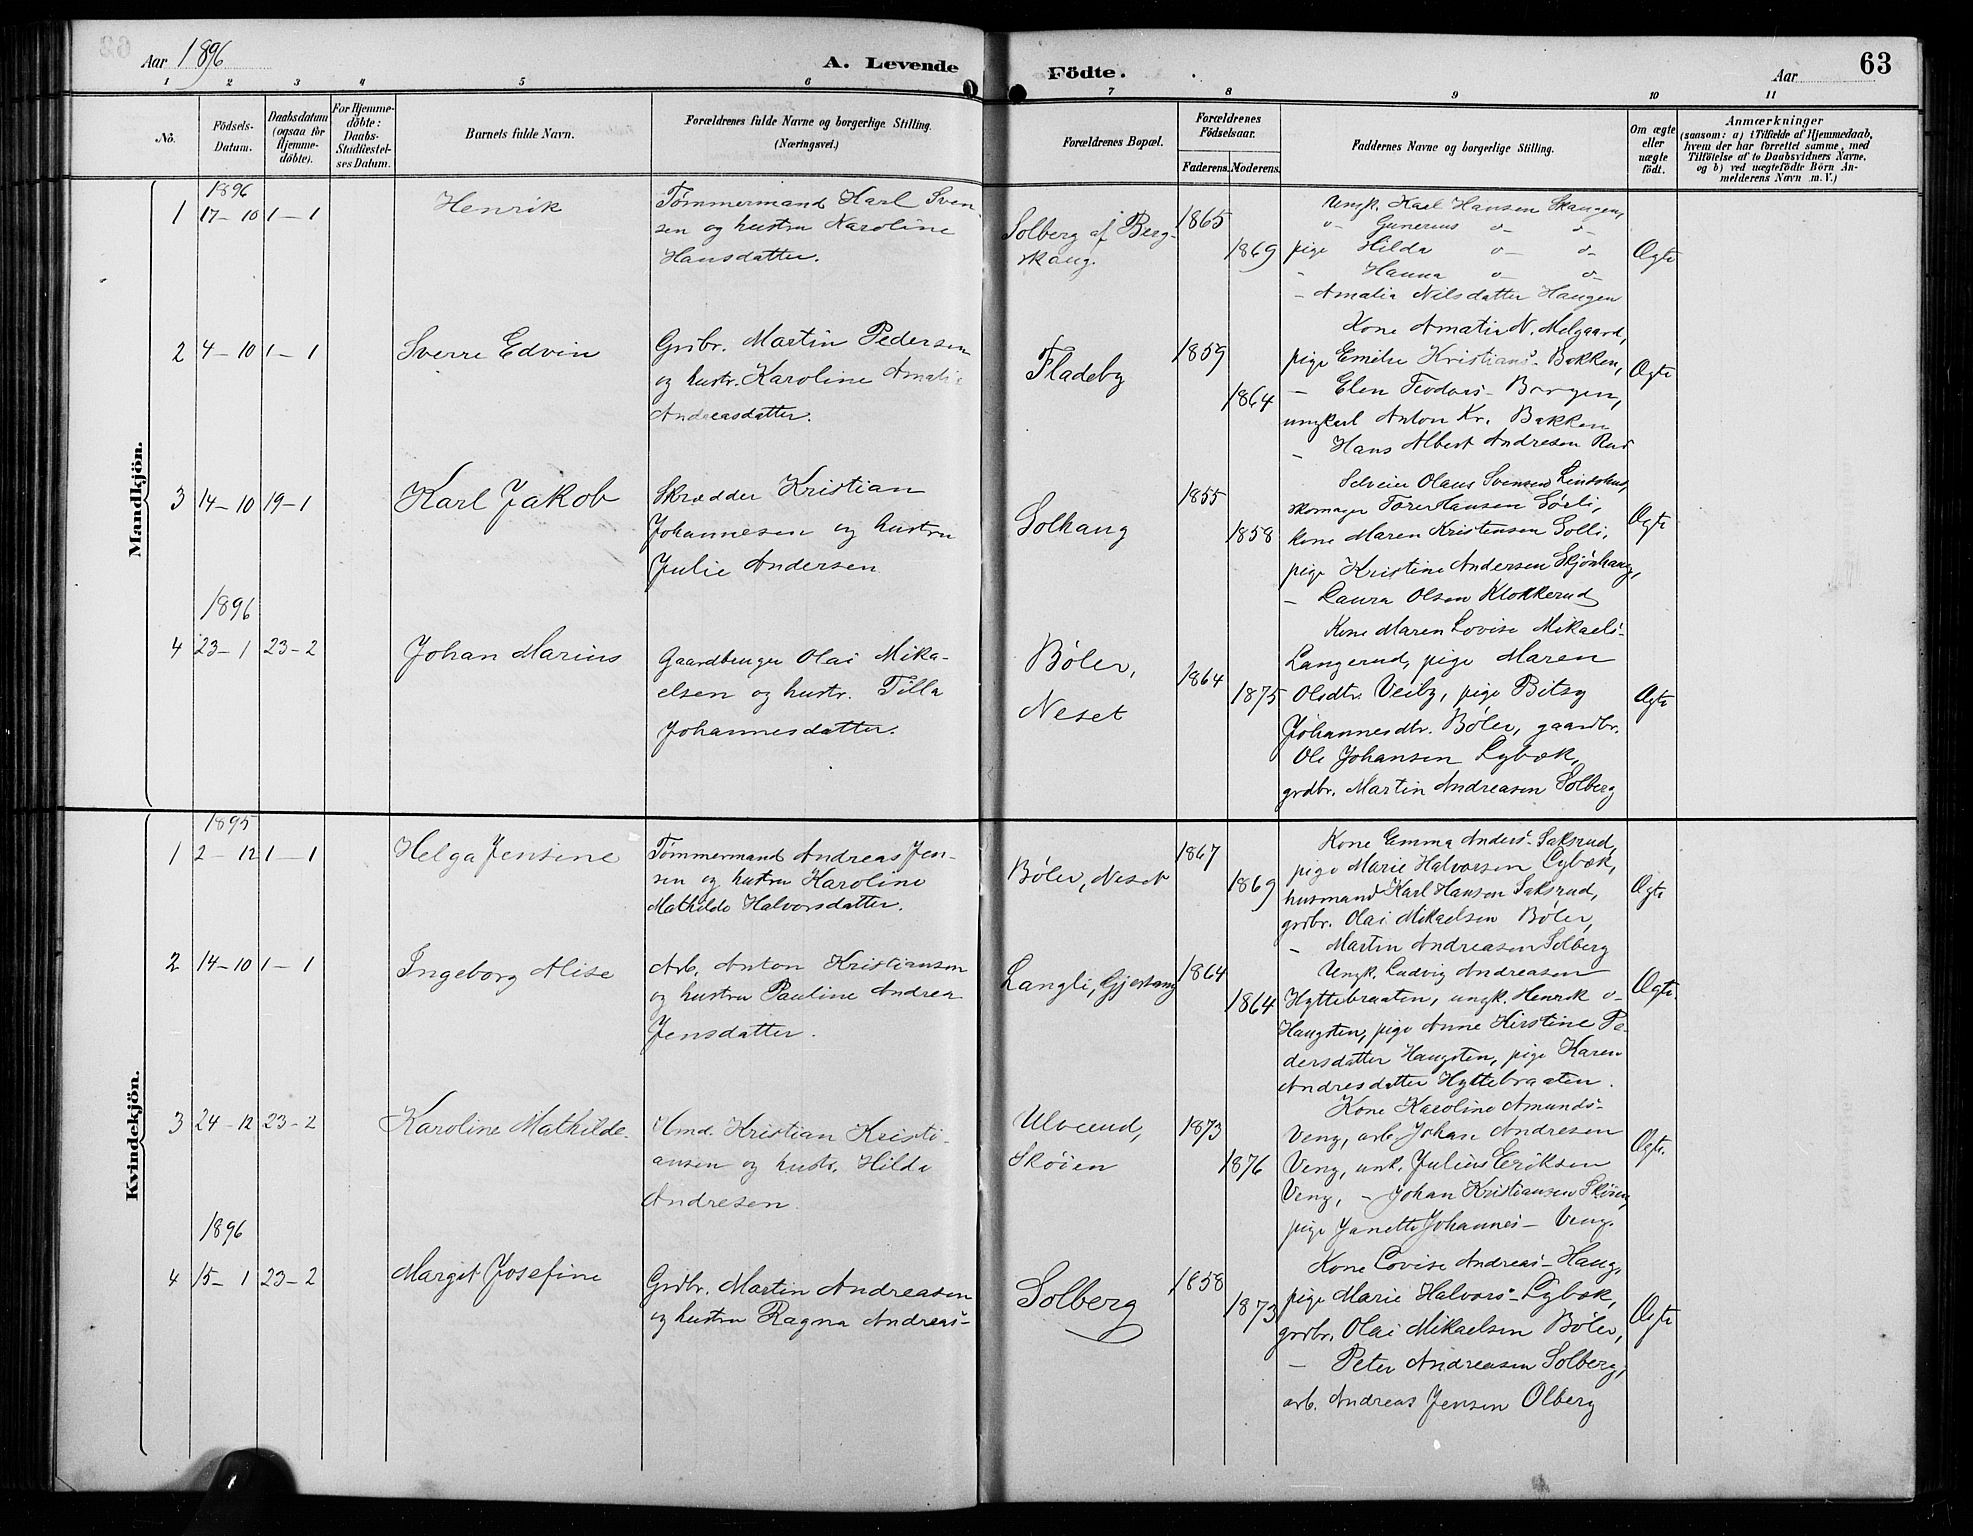 Aar 1896
A. Levende Födte.
Aar
63
1 2 3 4 5 6 7 8 9 10 11
No.
Födsels-Datum.
Daabsdatum (ogsaa for Hjemme-döbte).
For Hjemme-döbte: Daabs-Stadfæstel-ses Datum.
Barnets fulde Navn.
Forældrenes fulde Navne og borgerlige Stilling. (Næringsvei.)
Forældrenes Bopæl.
Forældrenes Födselsaar.
Faderens. Moderens.
Faddernes Navne og borgerlige Stilling.
Om ægte eller uægte födt.
Anmærkninger
(saasom: a) i Tilfælde af Hjemmedaab, hvem der har forrettet samme, med Tilföielse af to Daabsvidners Navne, og b) ved uægtefödte Börn An-melderens Navn m. V.)
Mandkjön.
1896
1 17-10 1-1
Henrik
Tømmermand Karl Sven-
sen og hustru Karoline
Hansdatter.
Solberg af Berg-
skaug.
1865
1869
Ungk. Karl Hansen Skaugen,
o- Gunerius o- o-
pige Hilda o- o-
- Hanna o- o-
- Amalia Nilsdatter Haugen
Ægte
2 4-10 1-1
Sverre Edvin
Grdbr. Martin Pedersen
og hustr. Karoline Amalie
Andreasdatter.
Fladeby
1859
1864
Kone Amatia N. Melgaard,
pige Emilie Kristians- Bakken,
- Elen Teodors- Borgen,
ungkarl Anton Kr. Bakken
- Hans Albert Andresen Rud
Ægte
3 14-10 19-1
Karl Jakob
Skrædder Kristian
Johannesen og hustru
Julie Andersen
Solhaug
1855
1858
Selveier Olaus Svensen Lindshus,
skomager Tore Hansen Sørli,
kone Maren Kristensen Solli,
pige Kristine Andersen Skjønhaug,
- Laura Olsen Klokkerud
Ægte
1896
4 23-1 23-2
Johan Marius
Gaardbruger Olai Mika-
elsen og hustr. Tilla
Johannesdatter.
Bøler,
Neset
1864
1875
Kone Maren Lovise Mikaels-
Langerud, pige Maren
Olsdtr. Veiby, pige Bitsy
Johannesdtr. Bøler, gaardbr.
Ole Johansen Lybæk,
grdbr. Martin Andreasen Solberg
Ægte
Kvindekjön.
1895
1 2-12 1-1
Helga Jensine
Tømmermand Andreas Jen-
sen og hustru Karoline
Mathilde Halvorsdatter.
Bøler, Neset
1867
1869
Kone Emma Anders- Saksrud,
pige Marie Halvorsen Lybæk,
husmand Karl Hansen Saksrud,
grdbr. Olai Mikaelsen Bøler,
- Martin Andreasen Solberg
Ægte
2 14-10 1-1
Ingeborg Alise
Arb. Anton Kristiansen
og hustru Pauline Andrea
Jensdatter.
Langli, Gjershaug
1864
1864
Ungk. Ludvig Andreasen
Hyttebraaten, ungk. Henrik o-
Haugsten, pige Anne Kirstine Pe-
dersdatter Haugsten, pige Karen
Andresdatter Hyttebraaten.
Ægte.
3 24-12 23-2
Karoline Mathilde.
Hmd. Kristian Kristi-
ansen og hustr. Hilda
Andresen.
Ulverud,
Skøien
1873
1876
Kone Karoline Amunds-
Veng, arb. Johan Andresen
Veng, unk. Julius Eriksen
Veng, - Johan Kristiansen Skøien,
pige Janette Johannes- Veng.
Ægte.
1896
4 15-1 23-2
Margit Josefine
Grdbr. Martin Andreasen
og hustru Ragna Andreas-
Solberg
1858
1873
Kone Lovise Andreas- Haug,
pige Marie Halvors- Lybæk,
grdbr. Olai Mikaelsen Bøler,
- Peter Andreasen Solberg,
arb. Andreas Jensen Olberg
Ægte